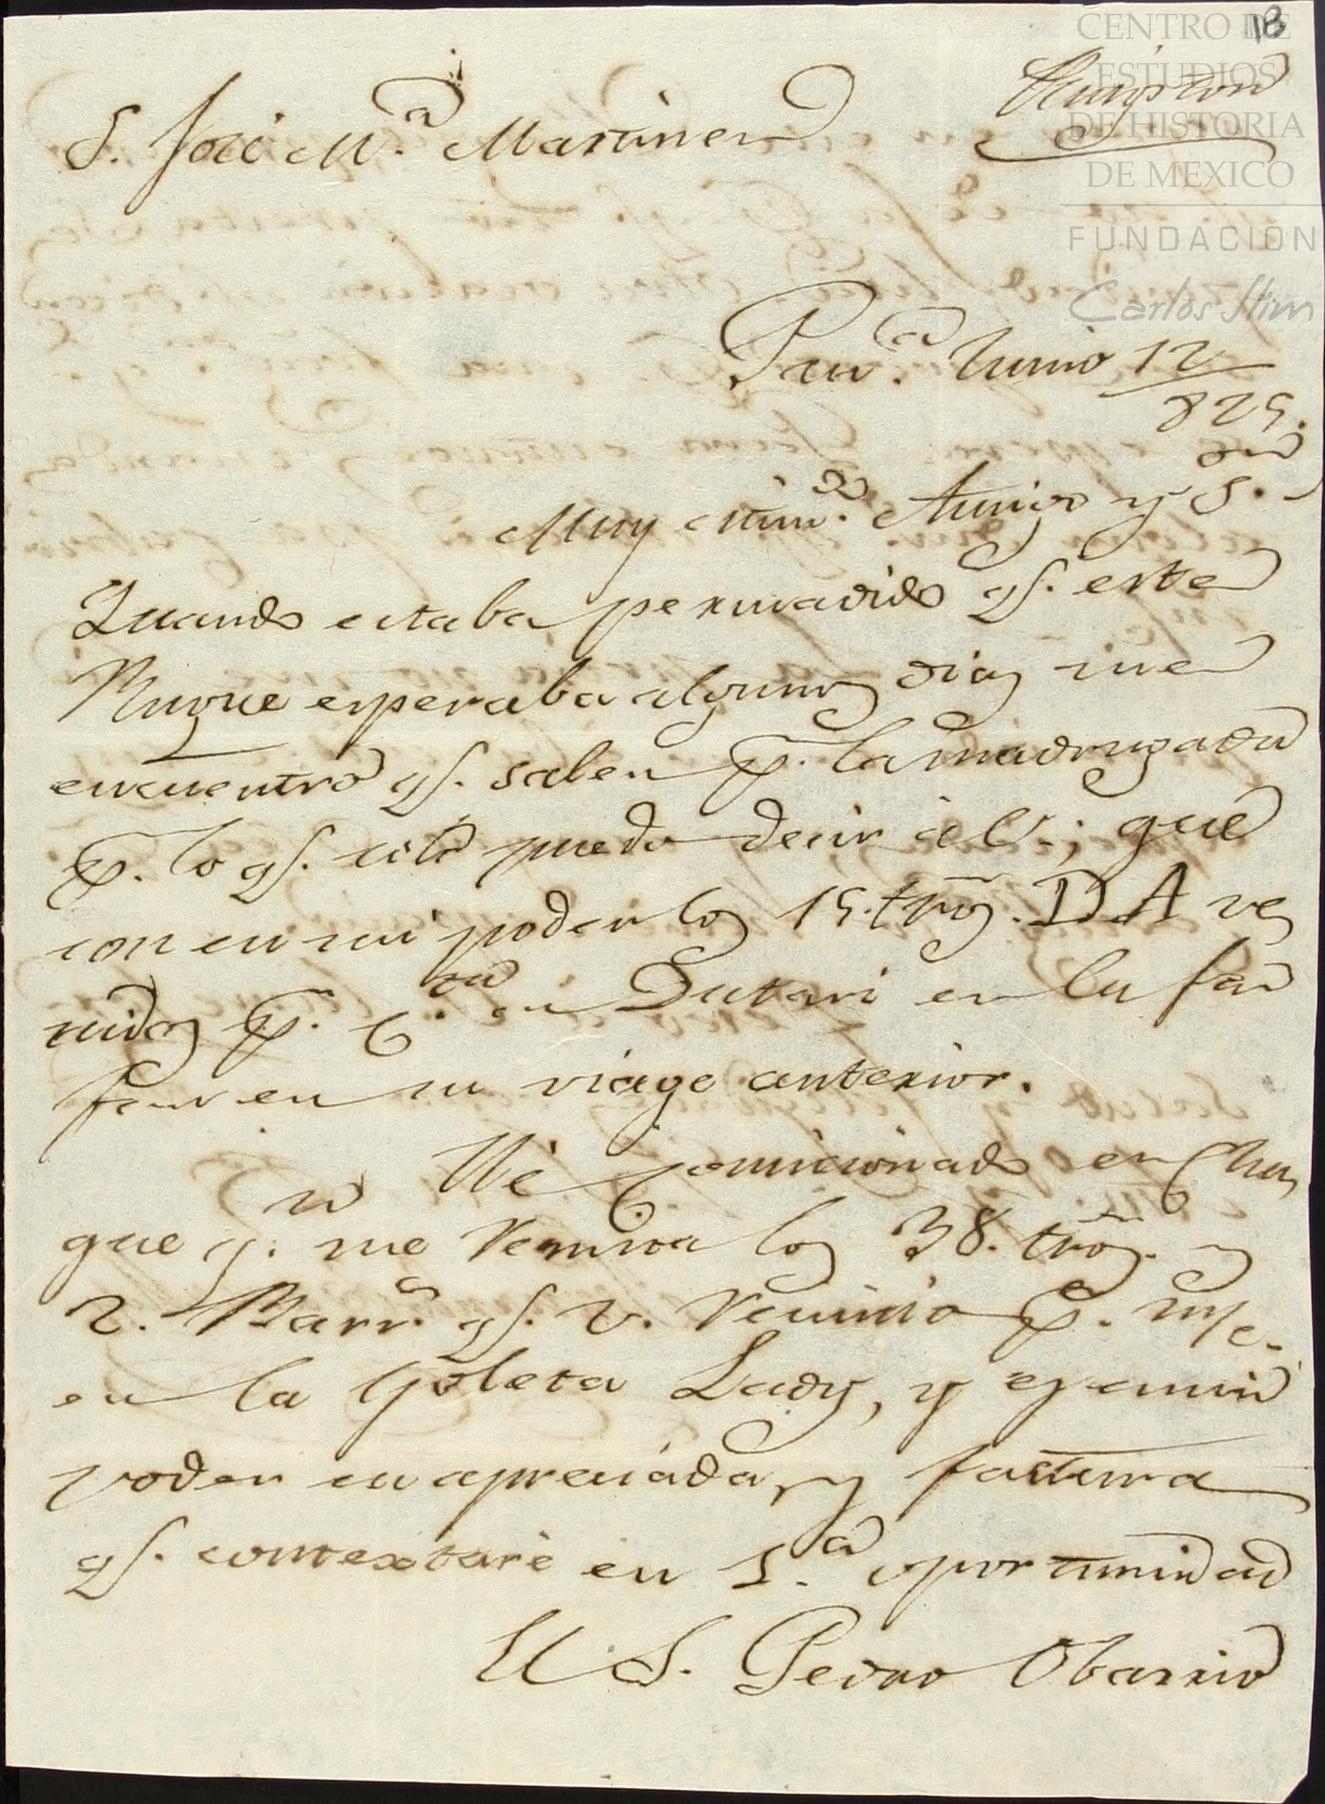 18
CENTRO DE
ESTUDIOS
DE HISTORIA
DE MEXICO
FUNDACIÓN
Carlos Slim
Kingston
S. José M.ª Martinez
Pan.ª Junio 12
825.
Muy estim.do Amigo y S.or
Quando estaba persuadido q.e este
Buque esperaba algunos dias me
encuentro q.e sale p.r la madrugada
p.r lo q.e solo puedo decir à V.; que
son en mi poder los 15. tros. D A ve
nidos p.r c.ta en Dutari en la
su viage anterior.
Hé comicionado en Cha
gue p.a me Remita los 38. tros. y
2. Barr.s q.e V. Remitio p.r m/c.
en la Goleta Lady, y es en mi
poder su apreciada, y factura
q.e contextaré en 1.ª oportunidad
El S. Pedro Obarrio